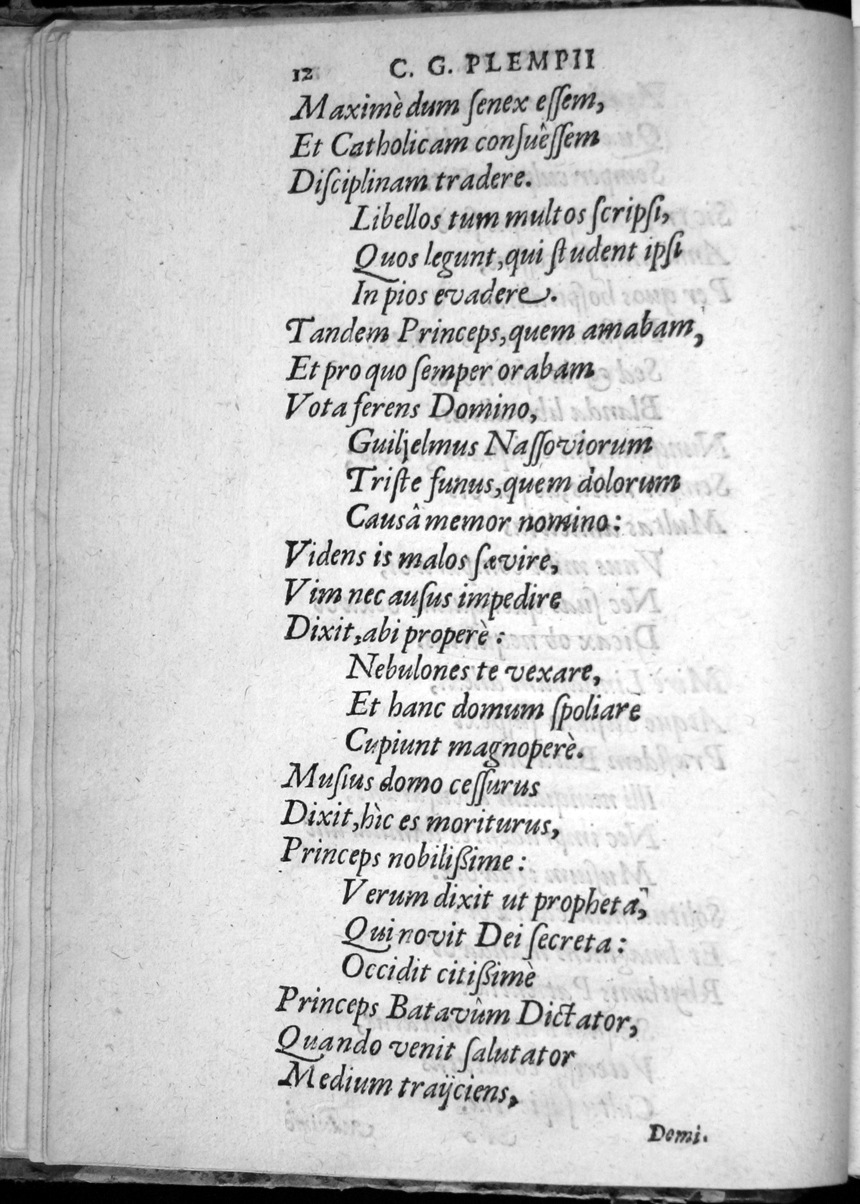 12 C. G. PLEMPII
Maximè dum ſenex eſſem,
Et Catholicam conſuêſſem
Diſciplinam tradere.
Libellos tum multos ſcripſi,
Quos legunt, qui ſtudent ipſi
In pios evadere.
Tandem Princeps, quem amabam,
Et pro quo ſemper orabam
Vota ferens Domino,
Guilielmus Naſſoviorum
Triſte funus, quem dolorum
Causâ memor nomino:
Videns is malos ſævire,
Vim nec auſus impedire
Dixit, abi properè:
Nebulones te vexare,
Et hanc domum ſpoliare
Cupiunt magnoperè.
Muſius domo ceſſurus
Dixit, hìc es moriturus,
Princeps nobilißime:
Verum dixit ut propheta,
Qui novit Dei ſecreta:
Occidit citißimè
Princeps Batavûm Dictator,
Quando venit ſalutator
Medium traijciens,
Domi.